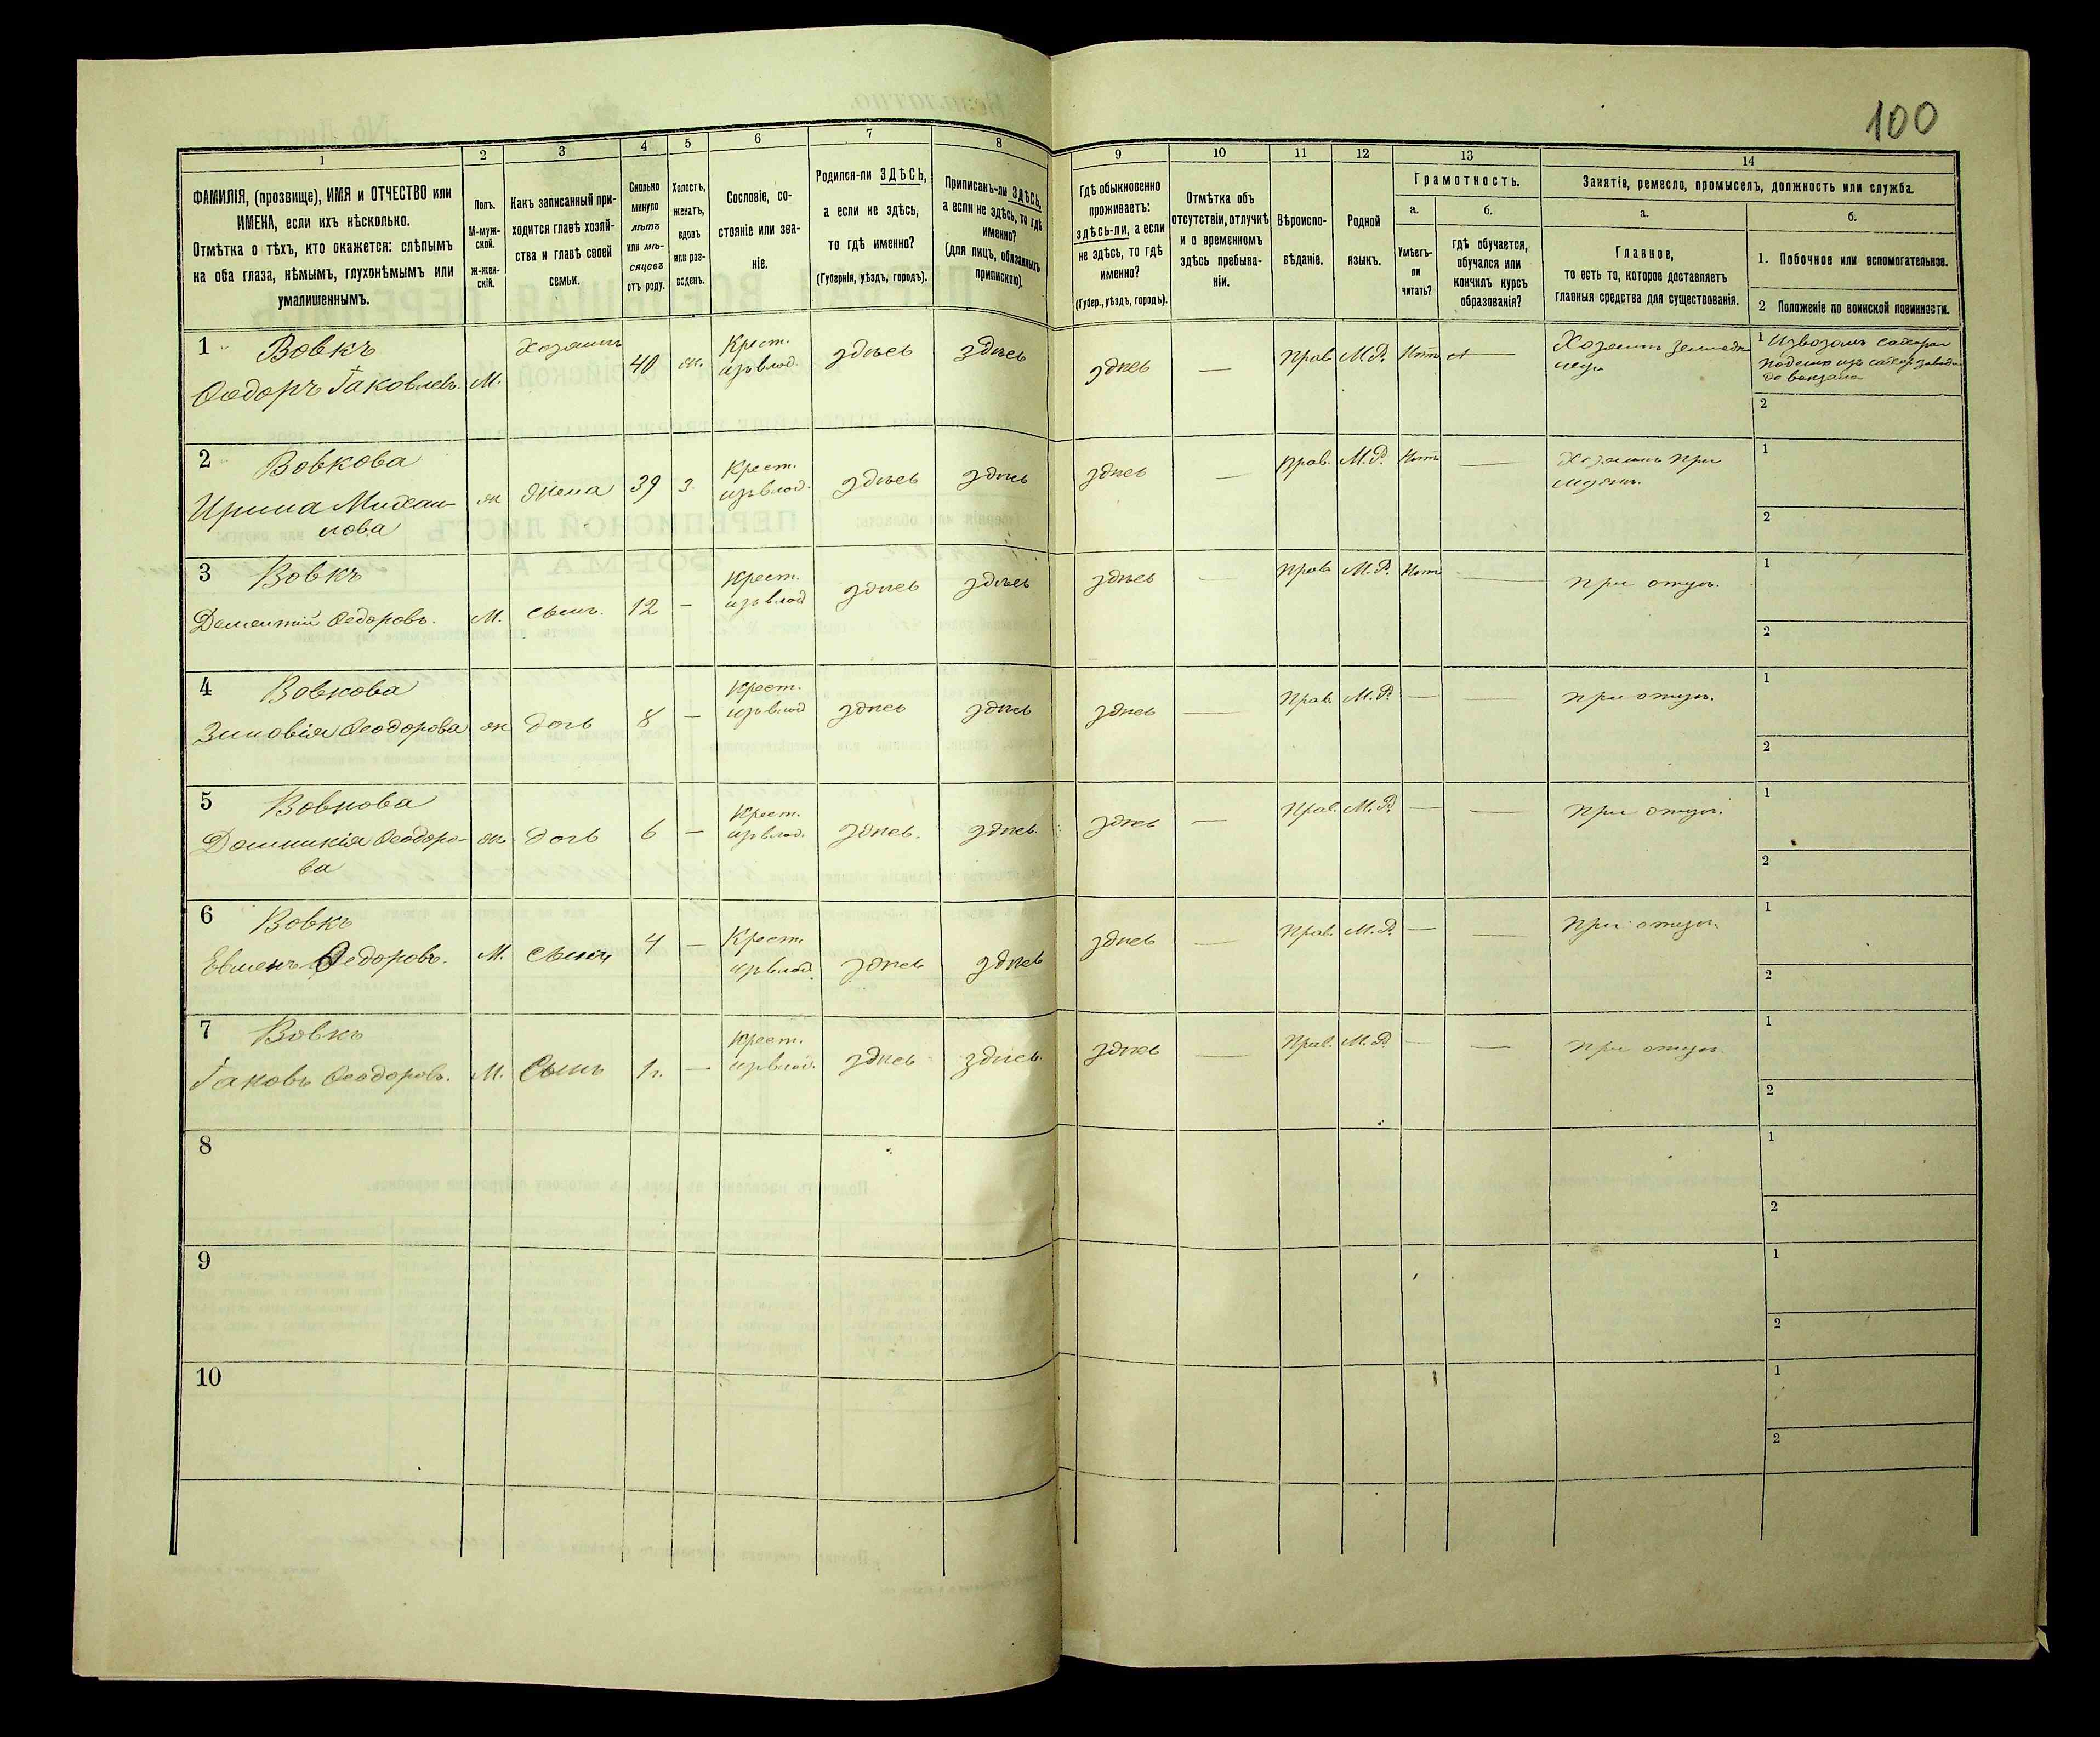 100
1 2 3 4 5 6 7 8 9 10 11 12 13 14
ФАМИЛІЯ, (прозвище), ИМЯ и ОТЧЕСТВО или
ИМЕНА, если ихъ нѣсколько.
Отмѣтка о тѣхъ, кто окажется: слѣпымъ
на оба глаза, нѣмымъ, глухонѣмымъ или
умалишеннымъ.
Полъ.
М-муж-
ской.
Ж-жен-
скій.
Какъ записанный при-
ходится главѣ хозяй-
ства и главѣ своей
семьи.
Сколько
минуло
лѣтъ
или мѣ-
сяцевъ
отъ роду.
Холостъ,
женатъ,
вдовъ
или раз-
веденъ.
Сословіе, со-
стояніе или зва-
ніе.
Родился-ли ЗДѢСЬ,
а если не здѣсь,
то гдѣ именно?
(Губернія, уѣздъ, городъ).
Приписанъ-ли ЗДѢСЬ,
а если не здѣсь, то гдѣ
именно?
(для лицъ, обязанныхъ
припискою).
Гдѣ обыкновенно
проживаетъ:
здѣсь-ли, а если
не здѣсь, то гдѣ
именно?
(Губер., уѣздъ, городъ).
Отмѣтка объ
отсутствіи, отлучкѣ
и о временномъ
здѣсь пребыва-
ніи.
Вѣроиспо-
вѣданіе.
Родной
языкъ.
Грамотность.
а.
Умѣетъ-
ли
читать?
б.
гдѣ обучается,
обучался или
кончилъ курсъ
образованія?
Занятія, ремесло, промыселъ, должность или служба.
а.
Главное,
то есть то, которое доставляетъ
главныя средства для существованія.
б.
1. Побочное или вспомогательное.
2 Положеніе по воинской повинности.
1 Вовкъ
Ѳеодоръ Іаковлевъ. М. Хозяинъ 40 ж. Крест.
изъ влад. здѣсь здѣсь здѣсь — Прав М.Р. Нѣтъ —
Хозяинъ
1 Извозомъ
до вокзала
2
2 Вовкова
Ирина Михаи-
лова ж жена 39 з. Крест.
изъ влад. здѣсь здѣсь здѣсь — Прав. М.Р. Нѣтъ —
при
мужѣ.
1
2
3 Вовкъ
Дементій Ѳедоровъ. М. сынъ. 12 — Крест.
изъ влад здѣсь здѣсь здѣсь — Прав М.Р. Нѣтъ — при отцѣ.
1
2
4 Вовкова
Зиновія Ѳеодорова ж дочь 8 — Крест.
изъ влад здѣсь здѣсь здѣсь — Прав. М.Р. — — при отцѣ.
1
2
5 Вовкова
Домникія Ѳеодоро-
ва ж дочь 6 — Крест.
изъ влад. здѣсь. здѣсь. здѣсь — Прав. М.Р. — — при отцѣ.
1
2
6 Вовкъ
Евменъ Ѳедоровъ. М. сынъ 4 — Крест.
изъ влад. здѣсь здѣсь здѣсь — Прав. М.Р. — — при отцѣ.
1
2
7 Вовкъ
Іаковъ Ѳеодоровъ. М. Сынъ 1г. — Крест.
изъ влад. здѣсь здѣсь. здѣсь — Прав. М.Р. — — при отцѣ.
1
2
8
1
2
9
1
2
10
1
2